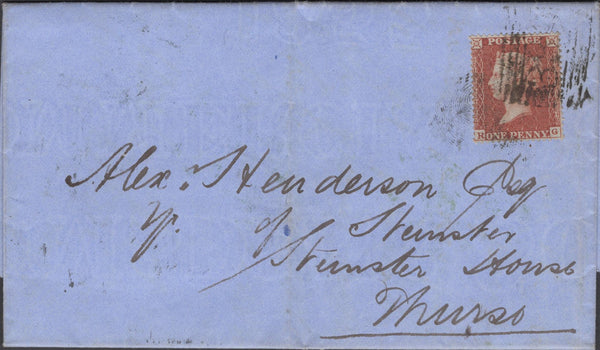 POSTAGE
ONE PENNY G
Alex. Henderson Esq
yr. of Stemster
Stemster House
Thurso